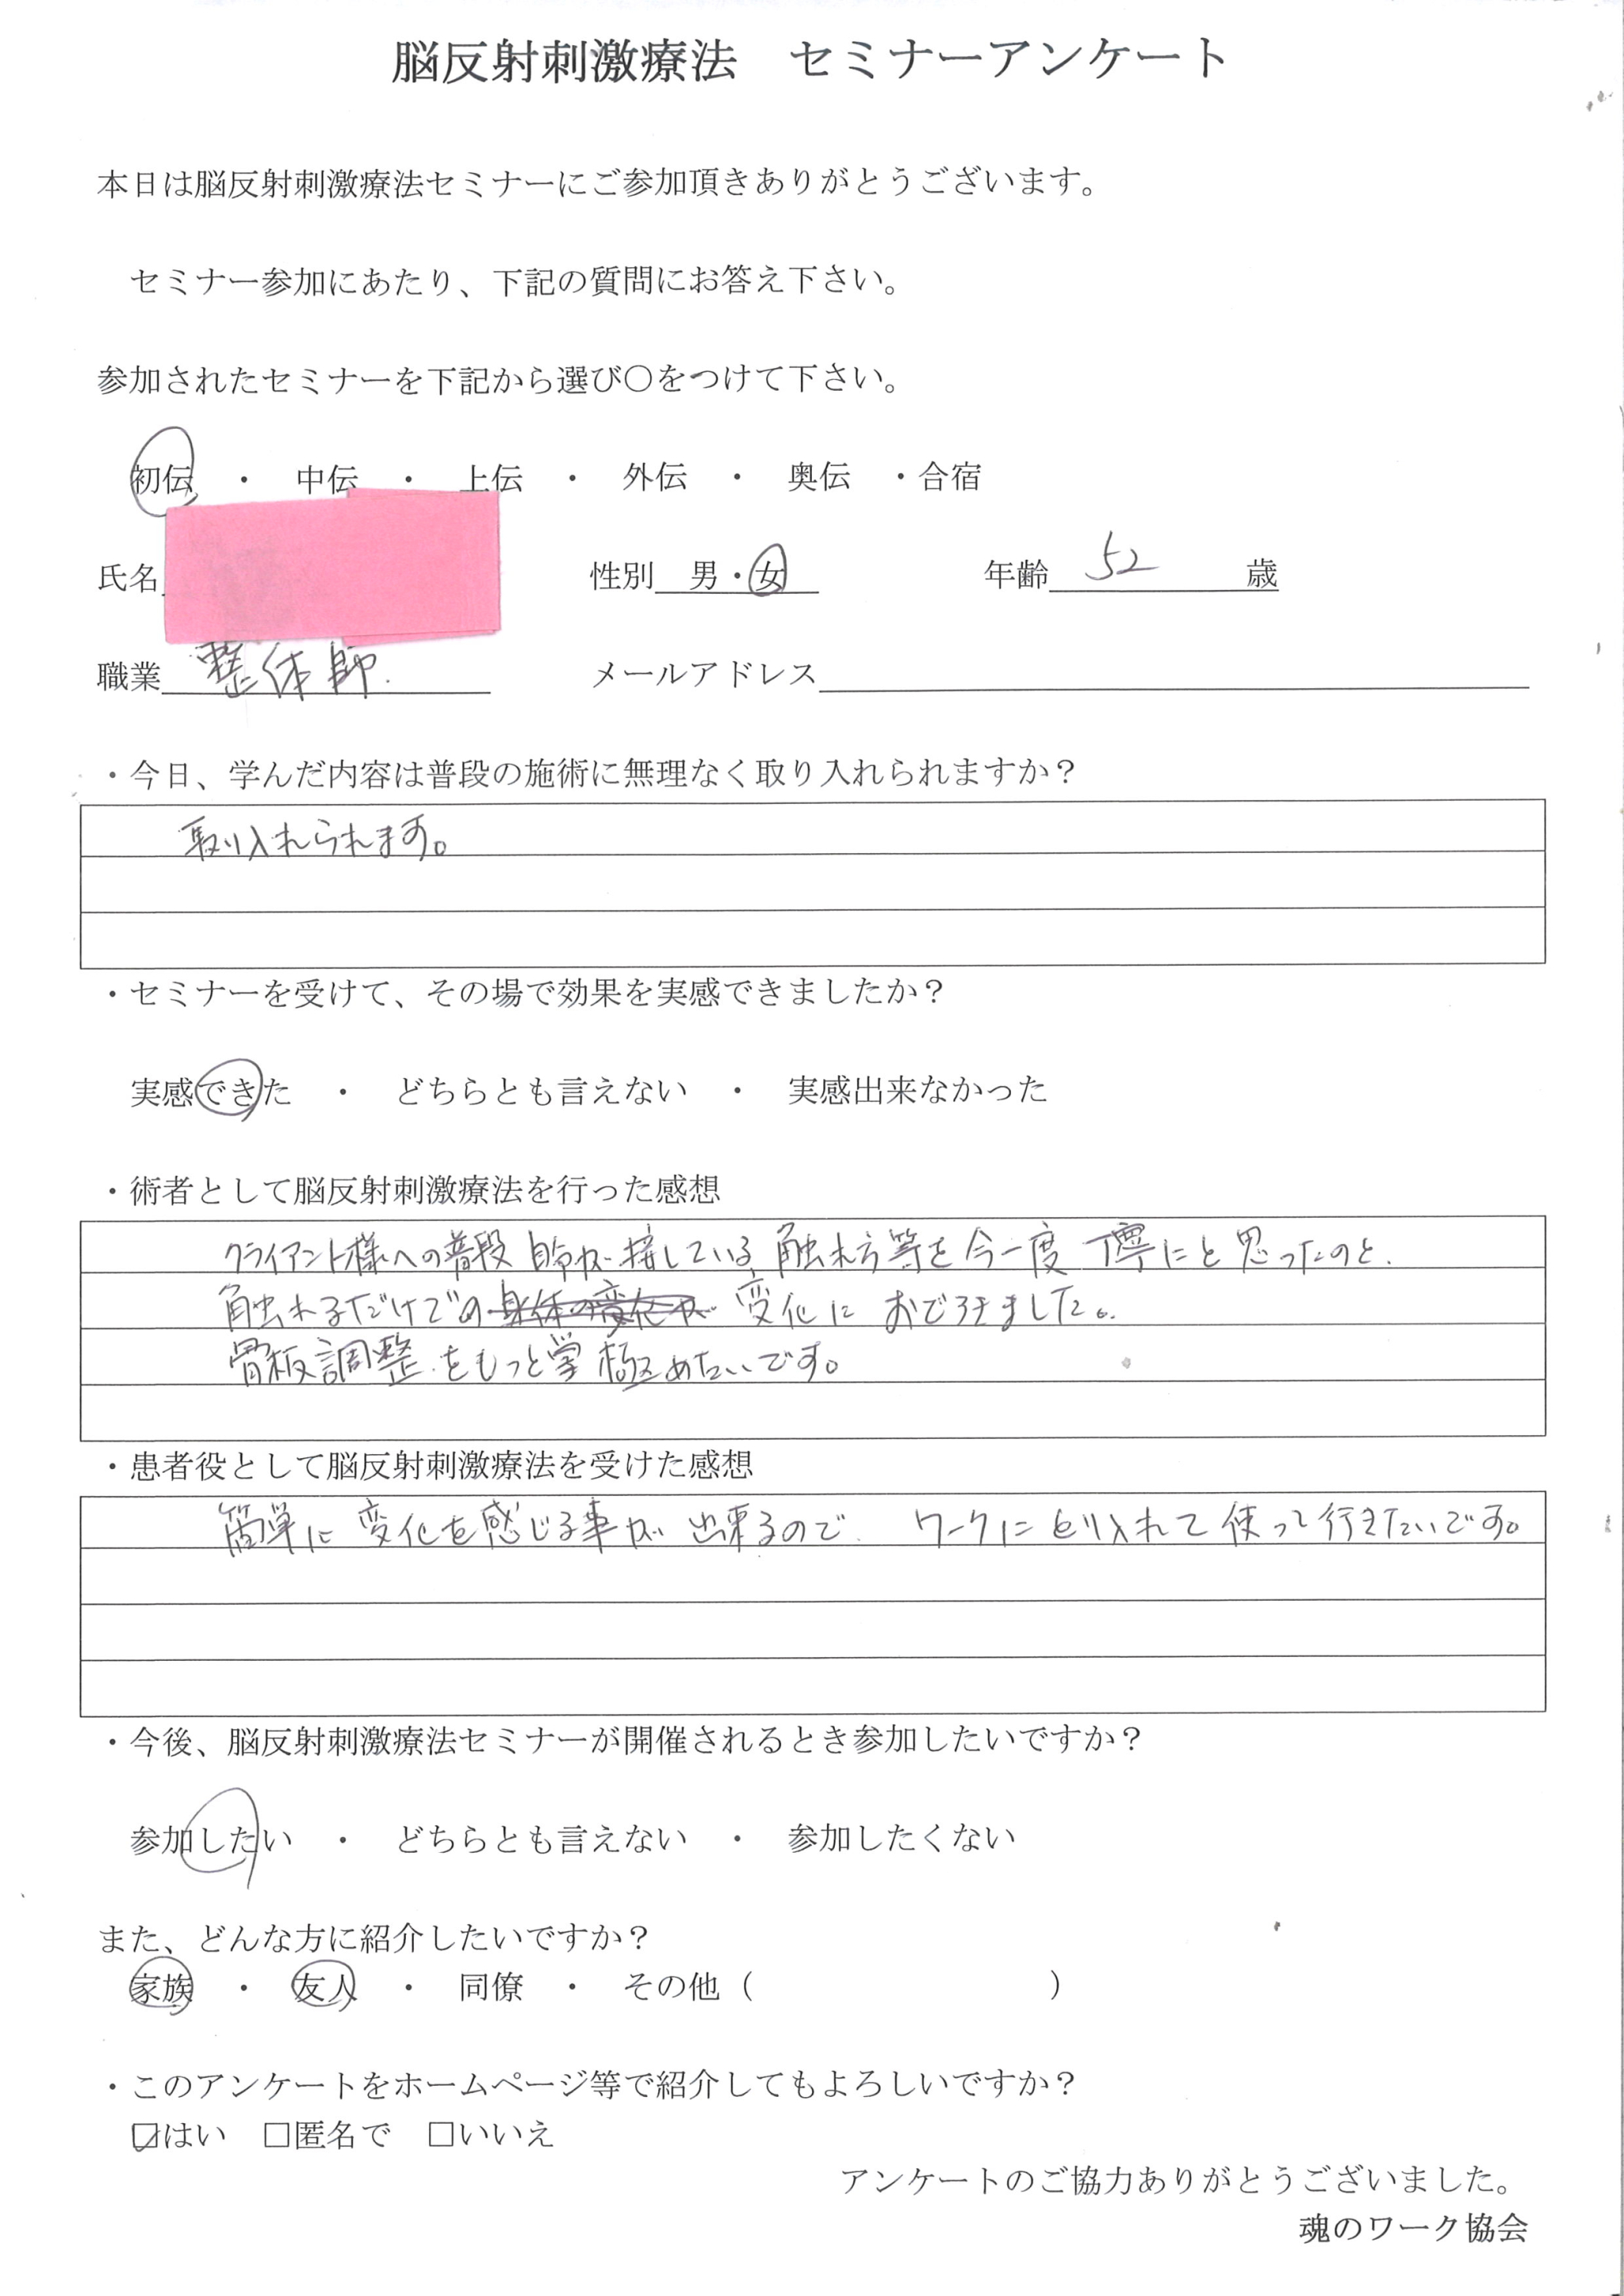 脳反射刺激療法　セミナーアンケート
本日は脳反射刺激療法セミナーにご参加頂きありがとうございます。
セミナー参加にあたり、下記の質問にお答え下さい。
参加されたセミナーを下記から選び〇をつけて下さい。
初伝　・　中伝　・　上伝　・　外伝　・　奥伝　・合宿
氏名　性別　男・女　年齢　52　歳
職業　整体師.　メールアドレス
・今日、学んだ内容は普段の施術に無理なく取り入れられますか？
取り入れられます。
・セミナーを受けて、その場で効果を実感できましたか？
実感できた　・　どちらとも言えない　・　実感出来なかった
・術者として脳反射刺激療法を行った感想
クライアント様への普段 自分が接している、触れ方等を今一度 丁寧にと思ったのと、
触れるだけでの身体の変化が 変化に おどろきました。
骨板調整をもっと学 極めたいです。
・患者役として脳反射刺激療法を受けた感想
簡単に 変化を感じる事が 出来るので、 ワークにとり入れて使って行きたいです。
・今後、脳反射刺激療法セミナーが開催されるとき参加したいですか？
参加したい　・　どちらとも言えない　・　参加したくない
また、どんな方に紹介したいですか？
家族　・　友人　・　同僚　・　その他（　　　　　　　　　）
・このアンケートをホームページ等で紹介してもよろしいですか？
☑はい　□匿名で　□いいえ
アンケートのご協力ありがとうございました。
魂のワーク協会